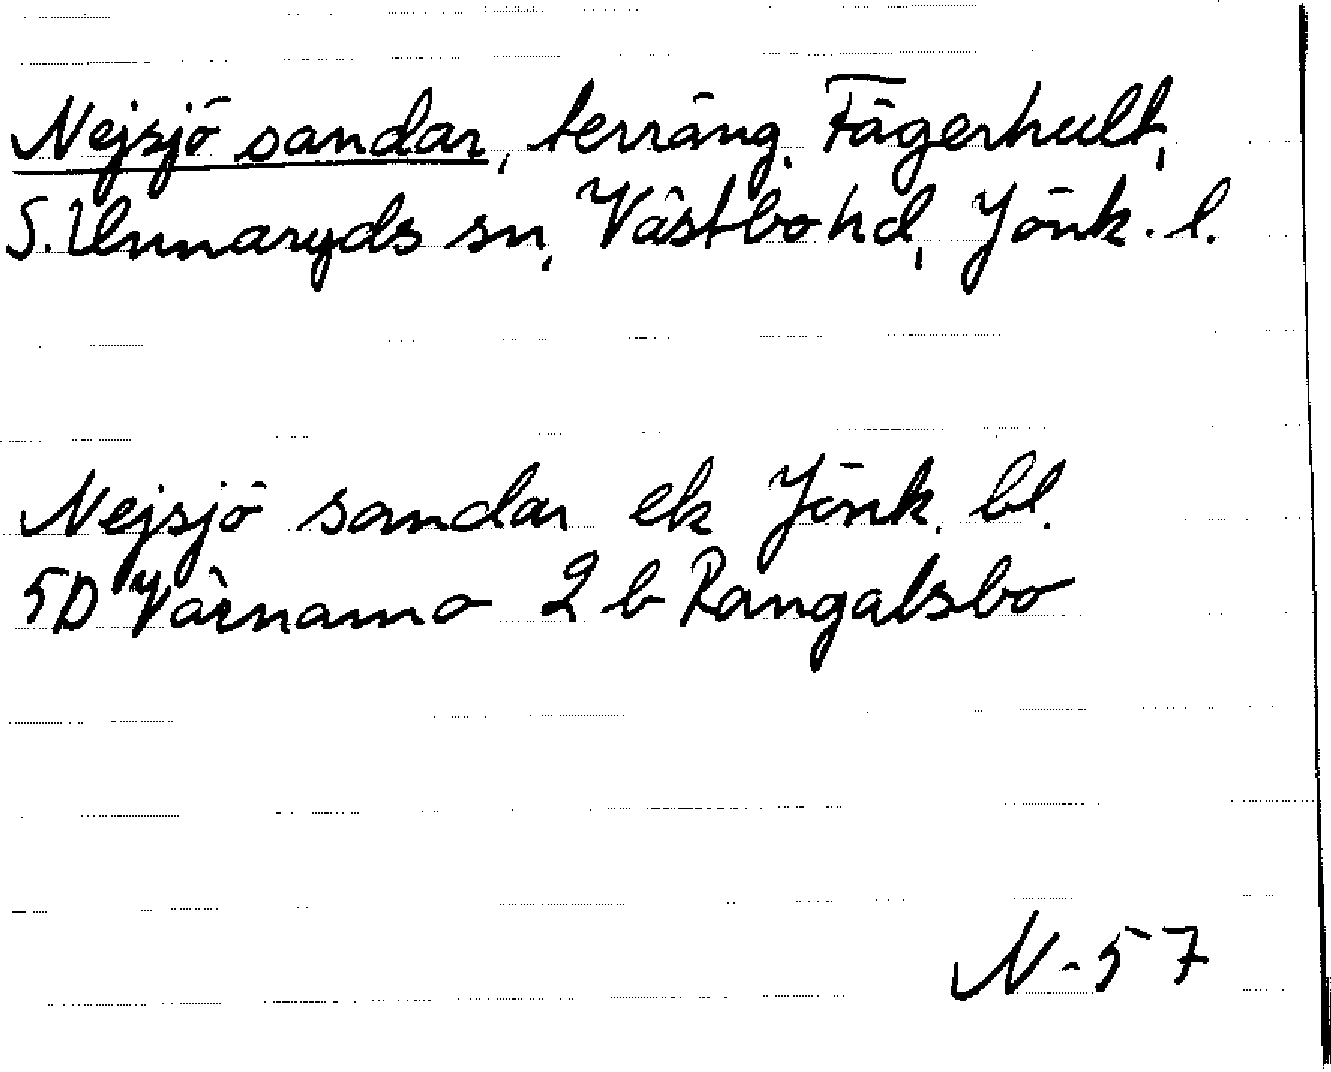 Nejsjö sandar, terräng. Fägerhult,
S. Unnaryds sn, Västbo hd, Jönk. l.
Nejsjö sandar ek Jönk. bl.
5D Värnamo 2 b Rangalsbo
N-57